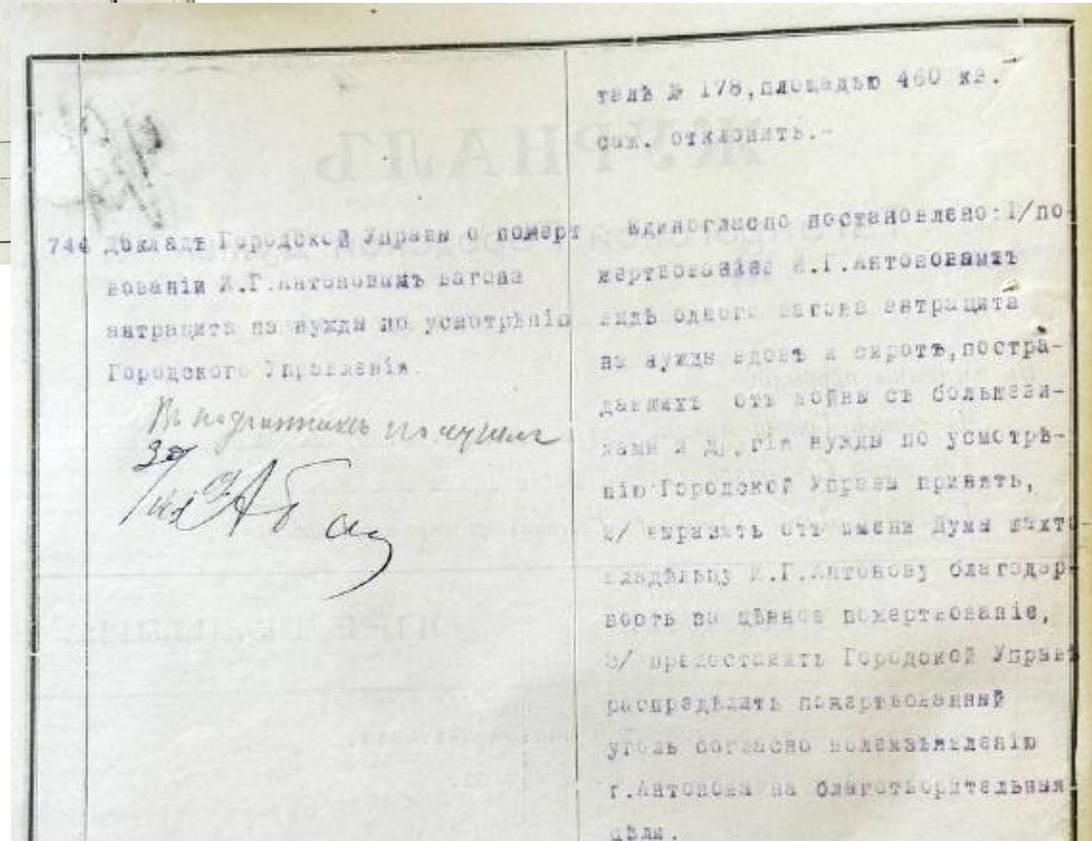 талѣ № 178,площадью 460 кв.
саж. отклонить.-
744 Докладъ Городской Управы о пожерт
вованіи И.Г.Антоновымъ вагона
антрацита на нужды по усмотрѣнію
Городского Управленія.
Въ подлинникѣ
Единогласно постановлено:1/по-
жертвованіе И.Г.Антоновымъ
видѣ одного вагона антрацита
на нужды вдовъ и сиротъ,постра-
давшихъ отъ войны съ большеви-
ками и другія нужды по усмотрѣ-
нію Городской Управы принять,
2/ выразить отъ имени Думы шахто
владѣльцу И.Г.Антонову благодар-
ность за цѣнное пожертвованіе,
3/ предоставить Городской Управѣ
распредѣлить пожертвованный
уголь согласно волеизъявленію
г.Антонова на благотворительныя
цѣли.